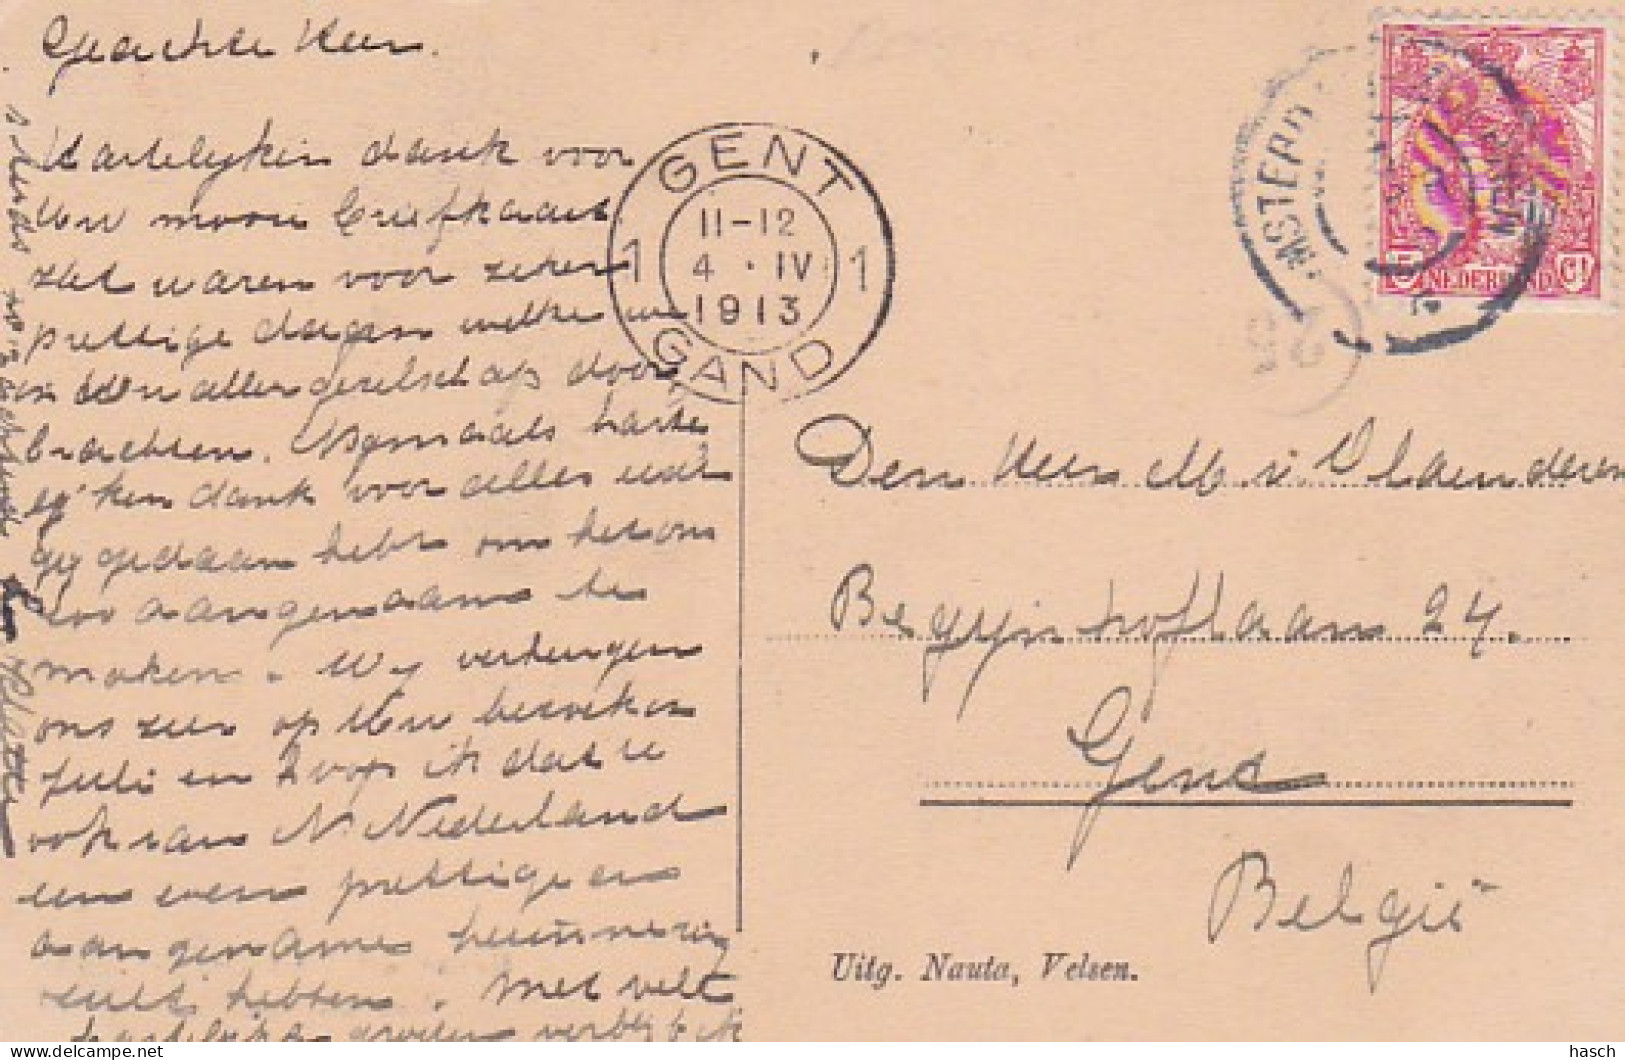 Geachte Heer.
Hartelijken dank voor
Uw mooie briefkaart
zat waren voor zeker
prettige dagen welke we
in Uw aller gezelschap door
brachten. Nogmaals harte
lijken dank voor alles wat
gij gedaan hebt om het ons
zoo aangenaam te
maken. Wij verheugen
ons zeer op Uw bezoek in
Juli en hoop ik dat U
ook van N. Nederland
een even prettige en
aangename herinnering
zult hebben. Met veel
hartelijke groeten verblijf ik
GENT
11-12
1 4 · IV 1
1913
GAND
AMSTERDAM
5 NEDERLAND Ct
Den Heer M. v. Vlaenderen
Begijnhoflaan 24.
Gent
België
Uitg. Nauta, Velsen.
hasch